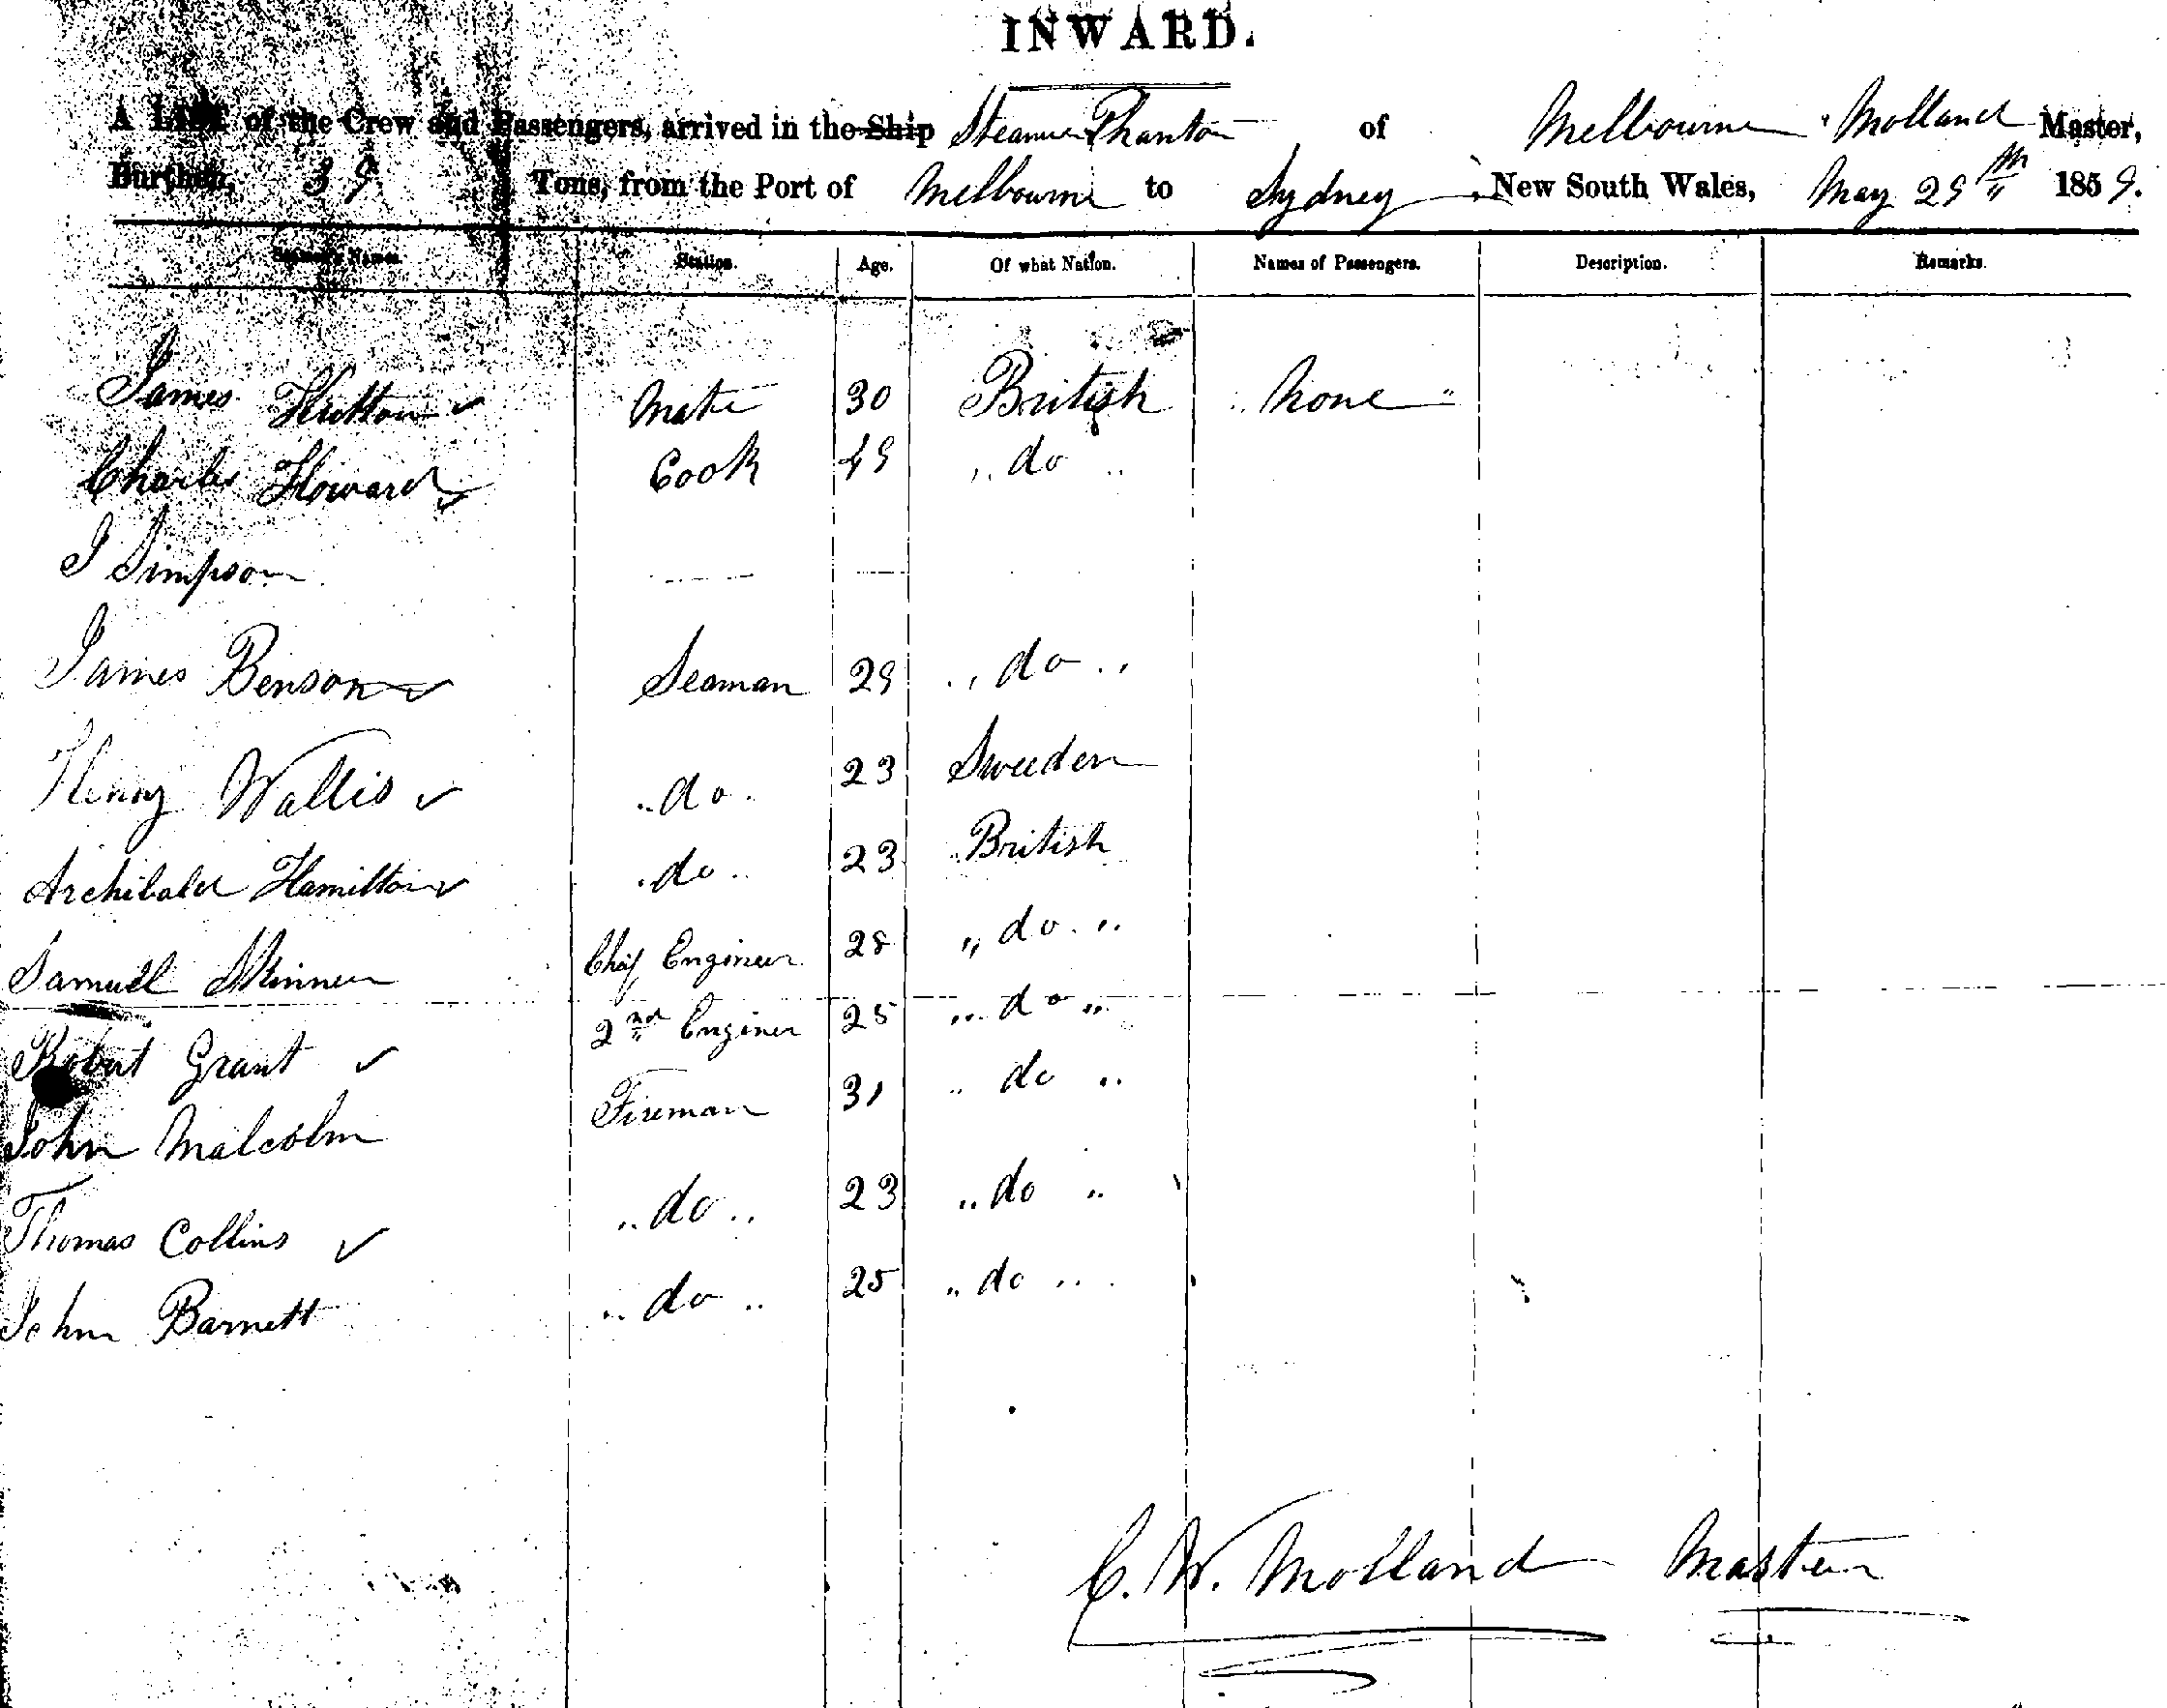 INWARD.
A List of the Crew and Passengers, arrived in the Ship Steamer Phantom of Melbourne Molland Master,
Burthen, 39 Tons, from the Port of Melbourne to Sydney New South Wales, May 29th 1859.
Seamen's Names. Station. Age. Of what Nation. Names of Passengers. Description. Remarks.
James Mate 30 British None
Charles Howard Cook 49 do
J Simpson
James Benson Seaman 29 do
Henry Wallis do 23 Sweeden
Archibald Hamilton do 23 British
Samuel Skinner Chief Engineer 28 do
Robert Grant 2nd Enginer 25 do
John Malcolm Fireman 31 do
Thomas Collins do 23 do
John Barnett do 25 do
C. W. Molland Master